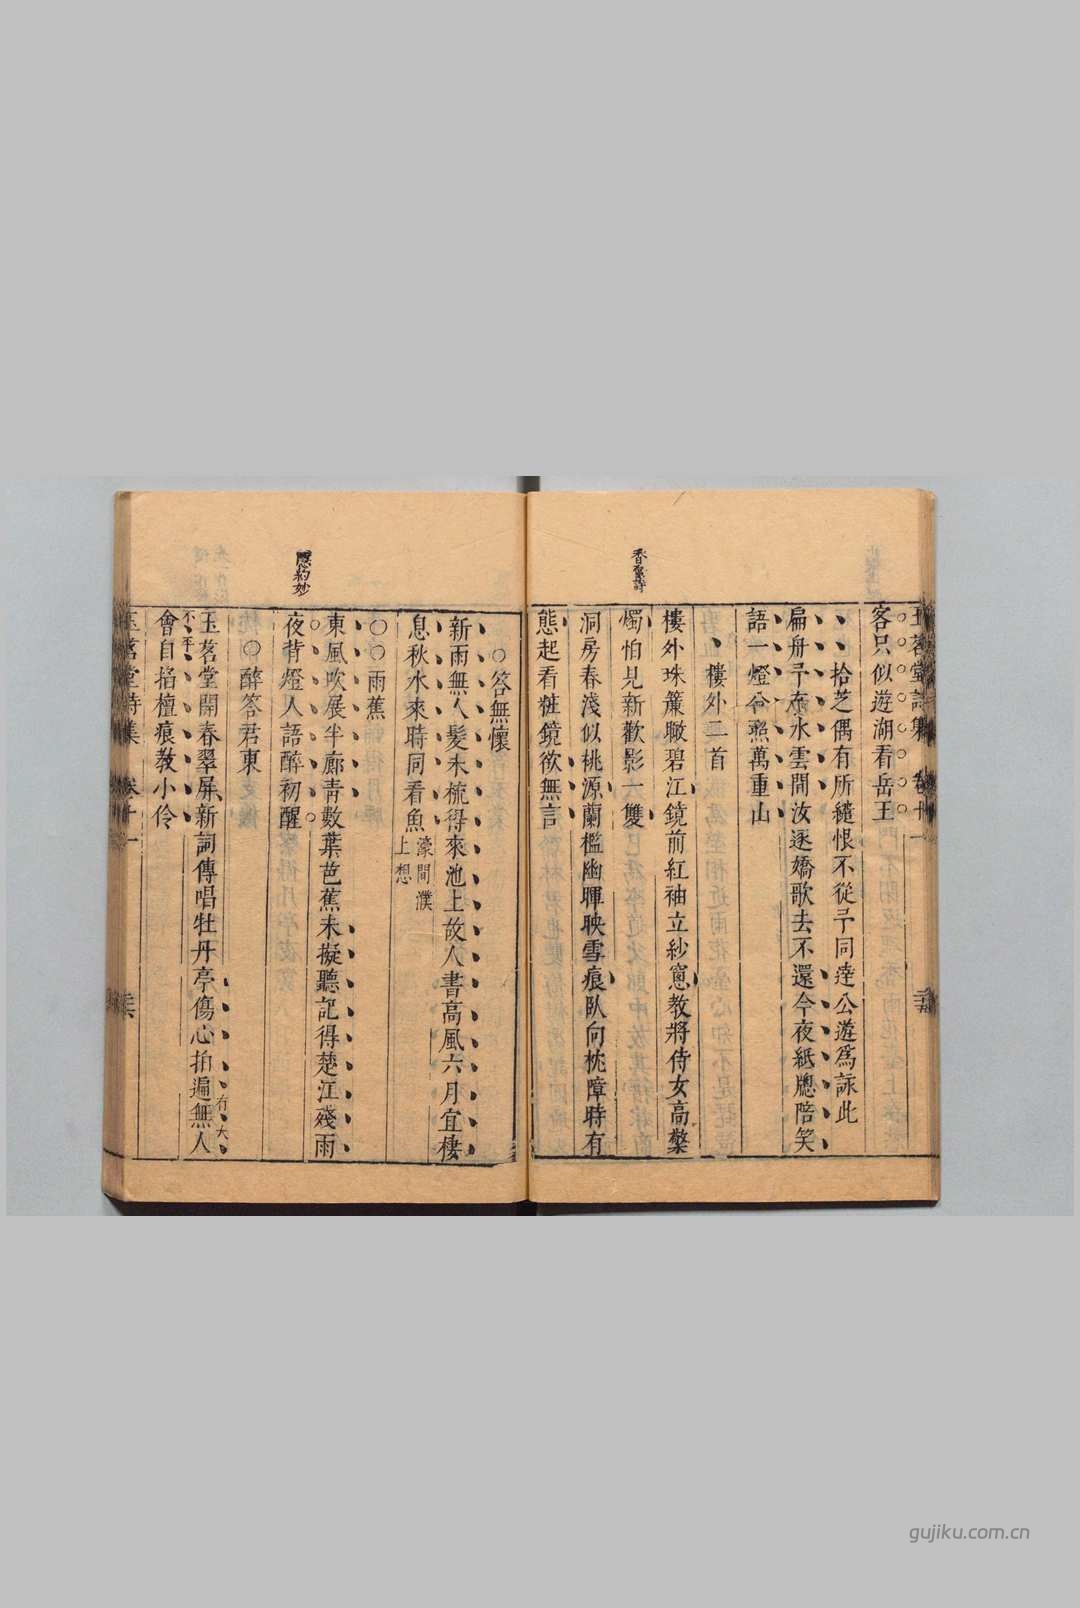 玉茗堂詩集 卷十一
客只似遊湖看岳王
拾芝偶有所繾恨不從予同達公遊爲詠此
扁舟予在水雲間汝逐嬌歌去不還今夜紙牕陪笑
語一燈今照萬重山
樓外二首
香奩詩
樓外珠簾瞰碧江鏡前紅袖立紗窻教將侍女高擎
燭怕見新歡影一雙
洞房春淺似桃源蘭檻幽暉映雪痕臥向枕障時有
態起看粧鏡欲無言
○答無懷
新雨無人髮未梳得來池上故人書高風六月宜棲
息秋水來時同看魚濠間濮
上想
○○雨蕉
東風吹展半廊靑數葉芭蕉未擬聽記得楚江殘雨
隱約妙
夜背燈人語醉初醒
○醉答君東
玉茗堂開春翠屏新詞傳唱牡丹亭傷心拍遍無人
有大
不平
會自掐檀痕教小伶
玉茗堂詩集 卷十一
gujiku.com.cn